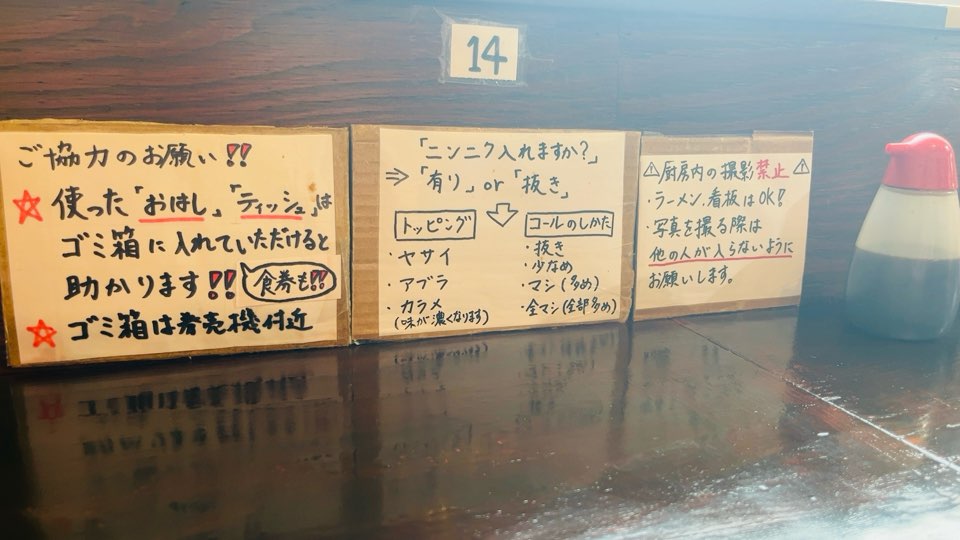 14
ご協力のお願い!!
☆使った「おはし」「ティッシュ」は
ゴミ箱に入れていただけると
助かります!!
食券も!!
☆ゴミ箱は券売機付近
「ニンニク入れますか?」
⇒「有り」or「抜き」
トッピング
・ヤサイ
・アブラ
・カラメ
(味が濃くなります)
コールのしかた
・抜き
・少なめ
・マシ(多め)
・全マシ(全部多め)
⚠厨房内の撮影禁止⚠
・ラーメン、看板はOK!
・写真を撮る際は
他の人が入らないように
お願いします。